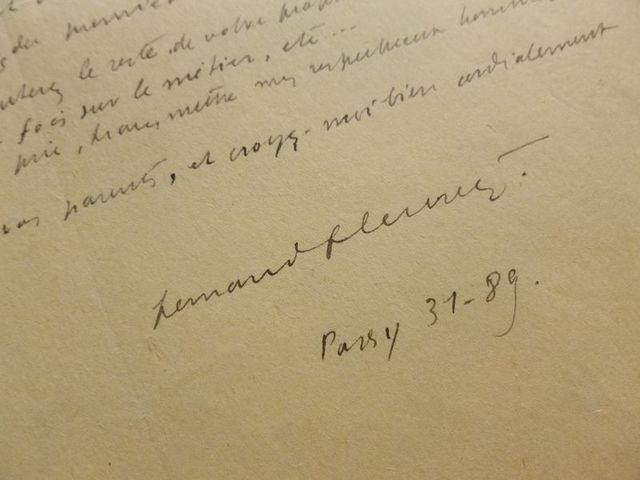 du
le reste de votre
fois sur le métier, etc...
prie, transmettre mes respectueux
vos parents, et croyez-moi bien cordialement
Fernand Fleuret.
Passy 31-89.